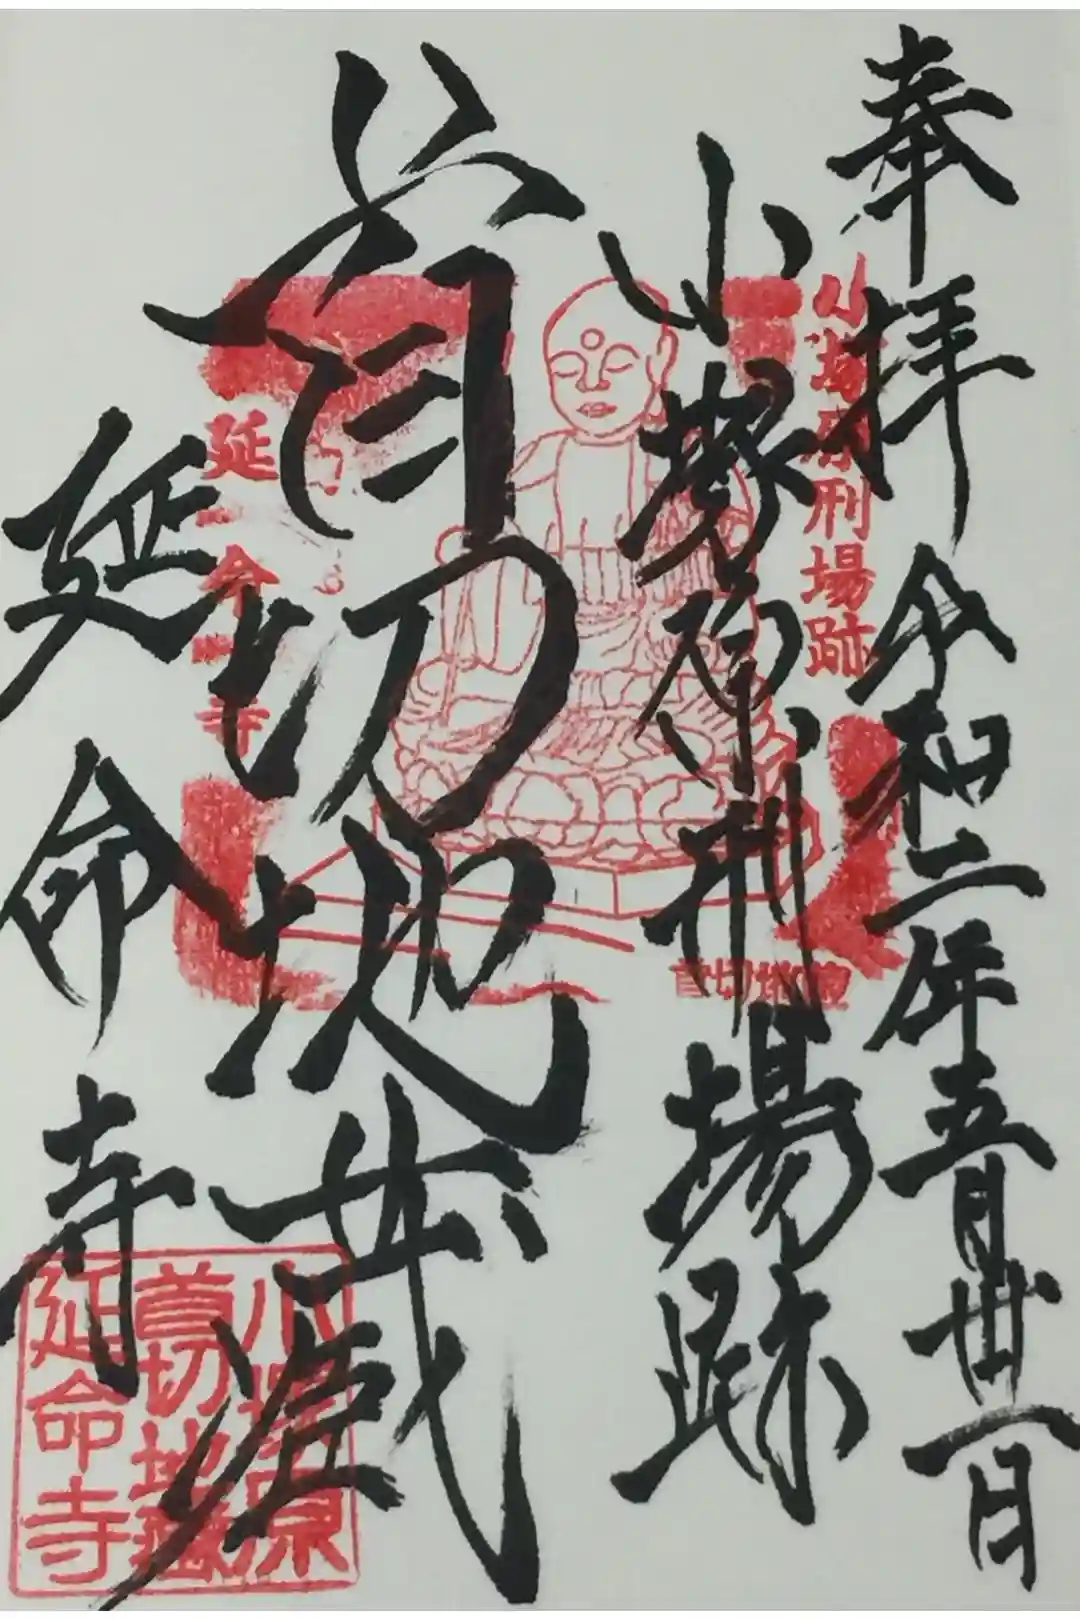 奉拝 令和二年五月卅一日
小塚原刑場跡
首切地蔵
延命寺
小塚原刑場跡
延命寺
首切地蔵
小塚原
首切地蔵
延命寺